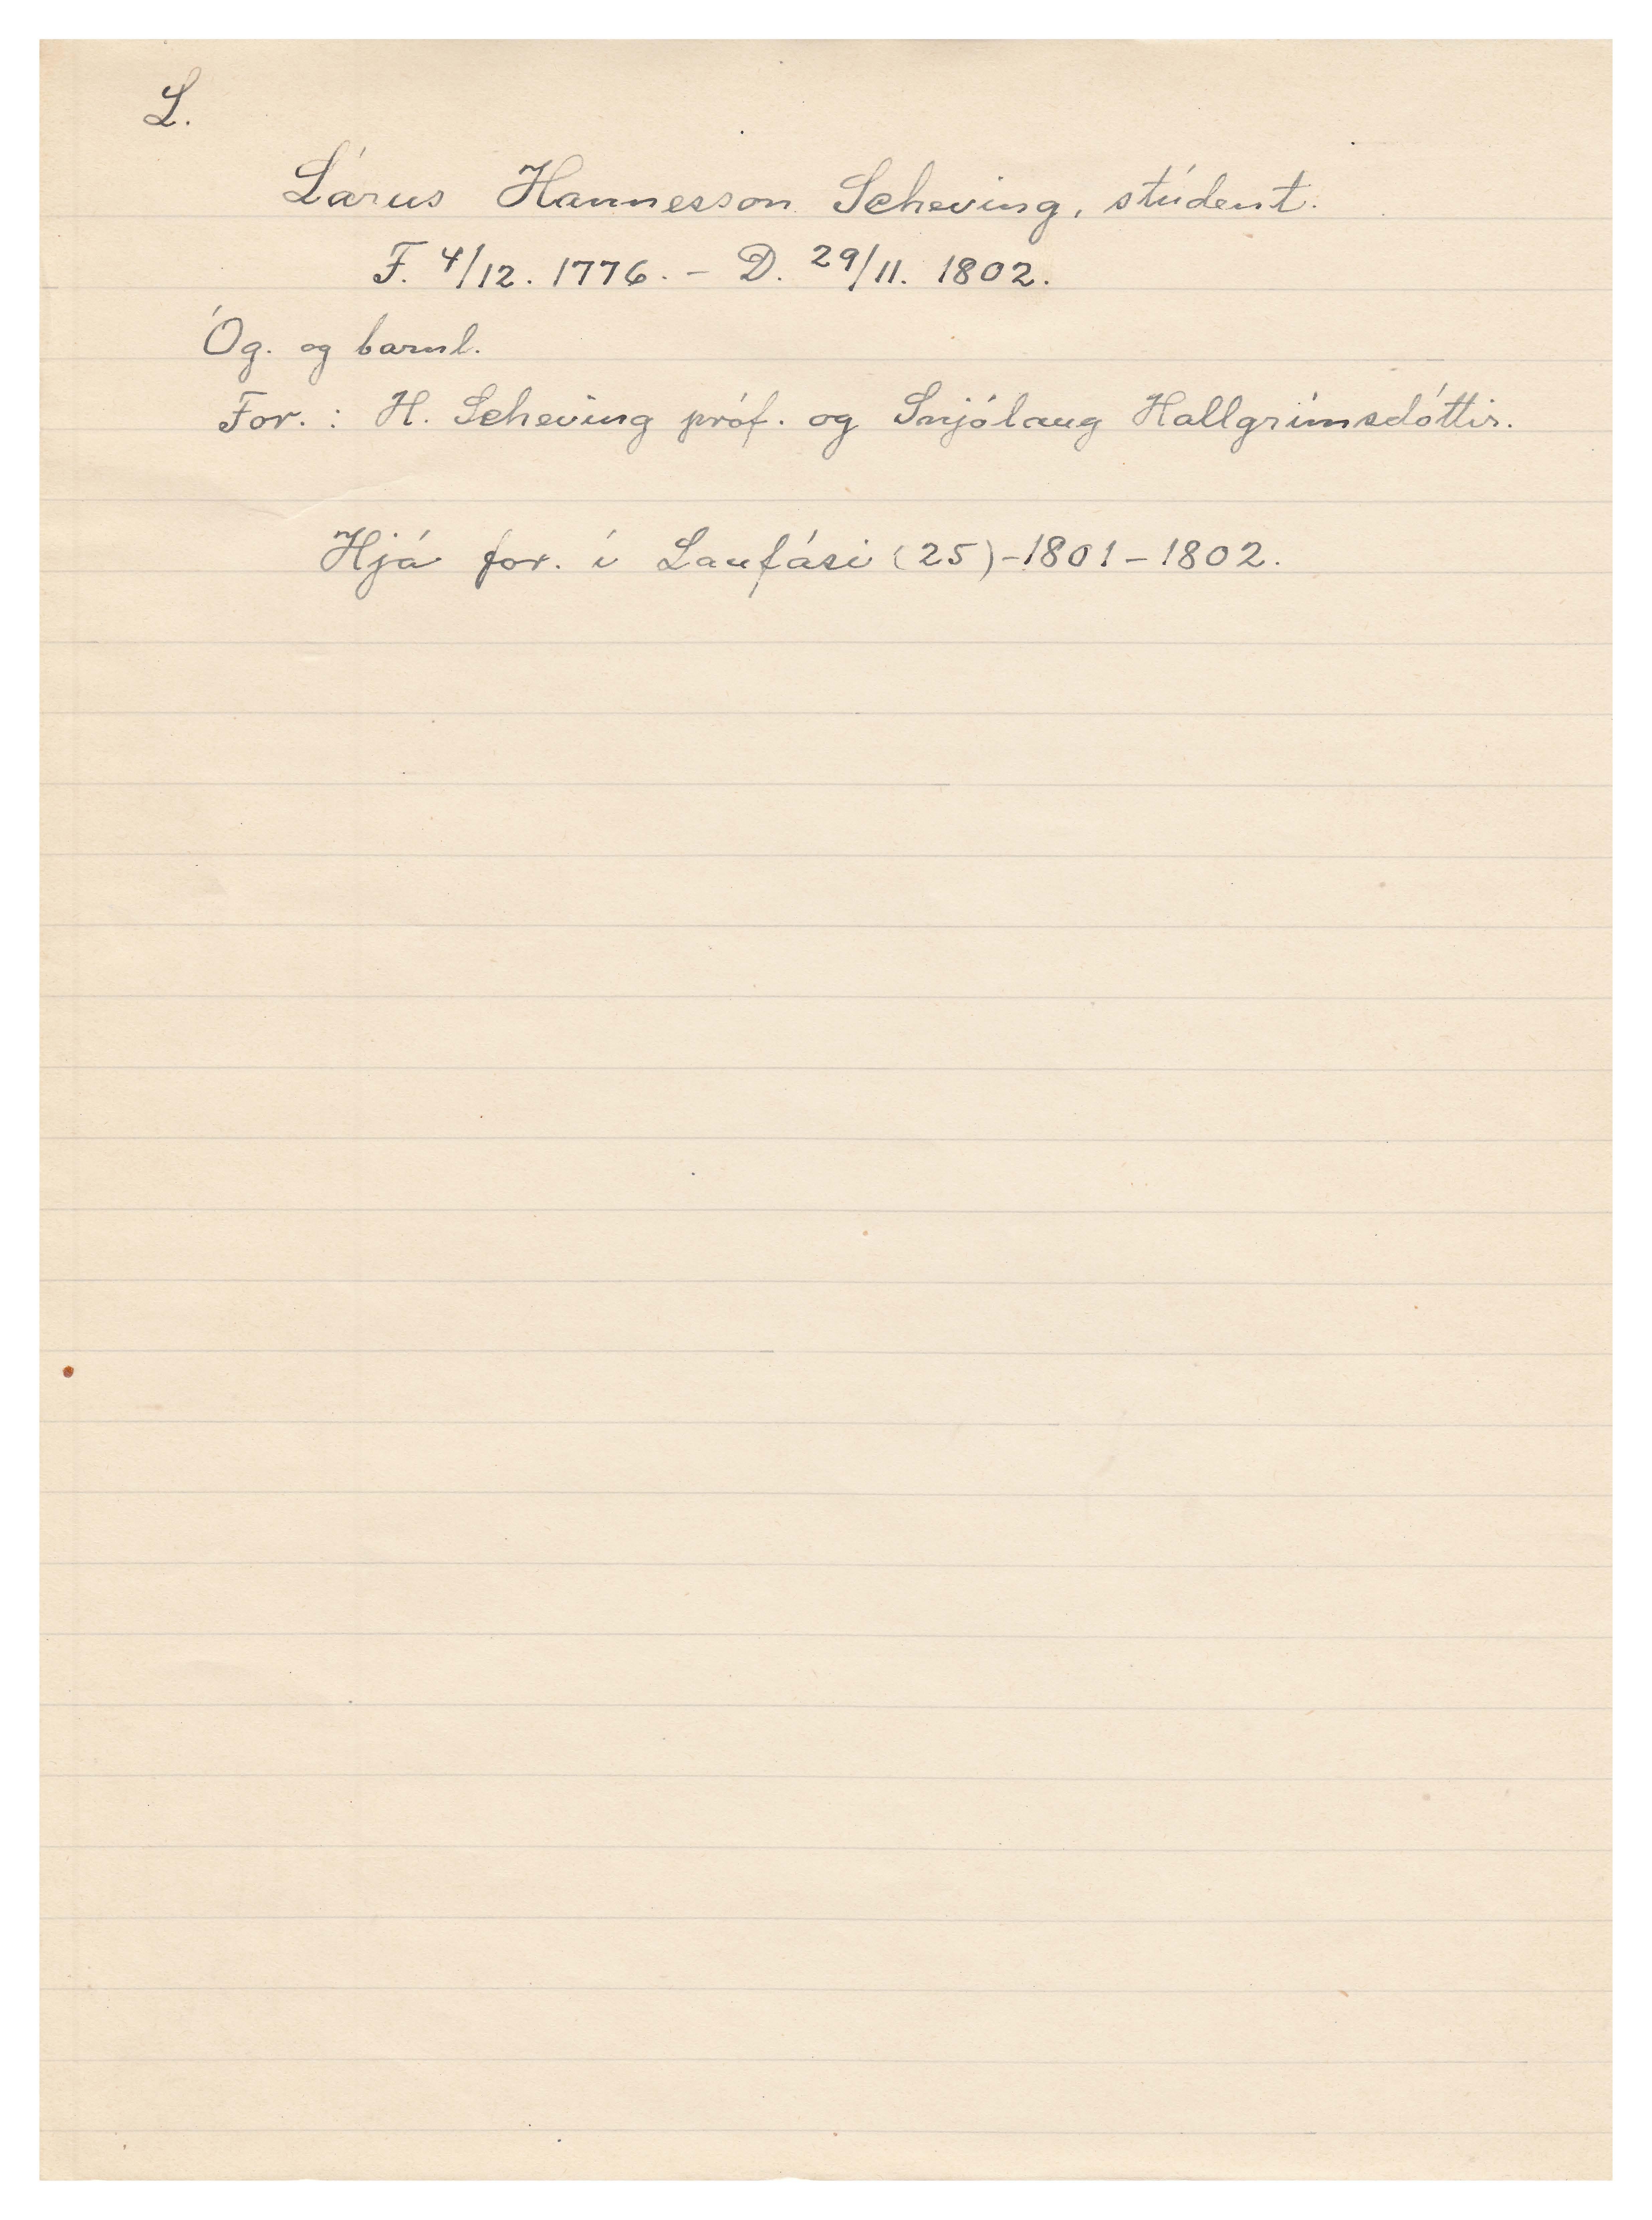 L.
Lárus Hannesson Scheving, stúdent.
F. 4/12. 1776. - D. 29/11. 1802.
Óg. og barnl.
For. : H. Scheving próf. og Snjólaug Hallgrímsdóttir.
Hjá for. í Laufási (25) - 1801 - 1802.